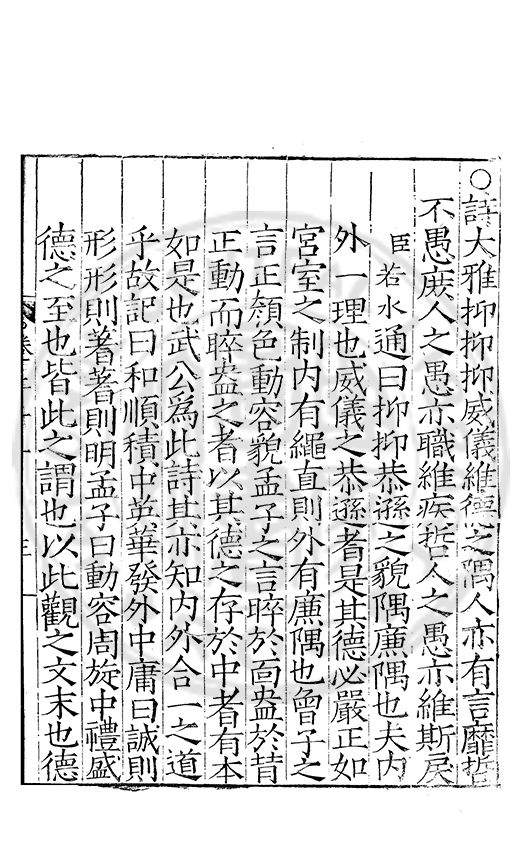 ○詩大雅抑抑抑威儀維德之隅人亦有言靡哲
不愚庶人之愚亦職維疾哲人之愚亦維斯戾
臣若水通曰抑抑恭遜之貌隅廉隅也夫内
外一理也威儀之恭遜者是其德必嚴正如
宮室之制内有繩直則外有廉隅也曾子之
言正顔色動容貌孟子之言睟於面盎於背
正動而睟盎之者以其德之存於中者有本
如是也武公爲此詩其亦知内外合一之道
乎故記曰和順積中英華發外中庸曰誠則
形形則著著則明孟子曰動容周旋中禮盛
德之至也皆此之謂也以此觀之文末也德